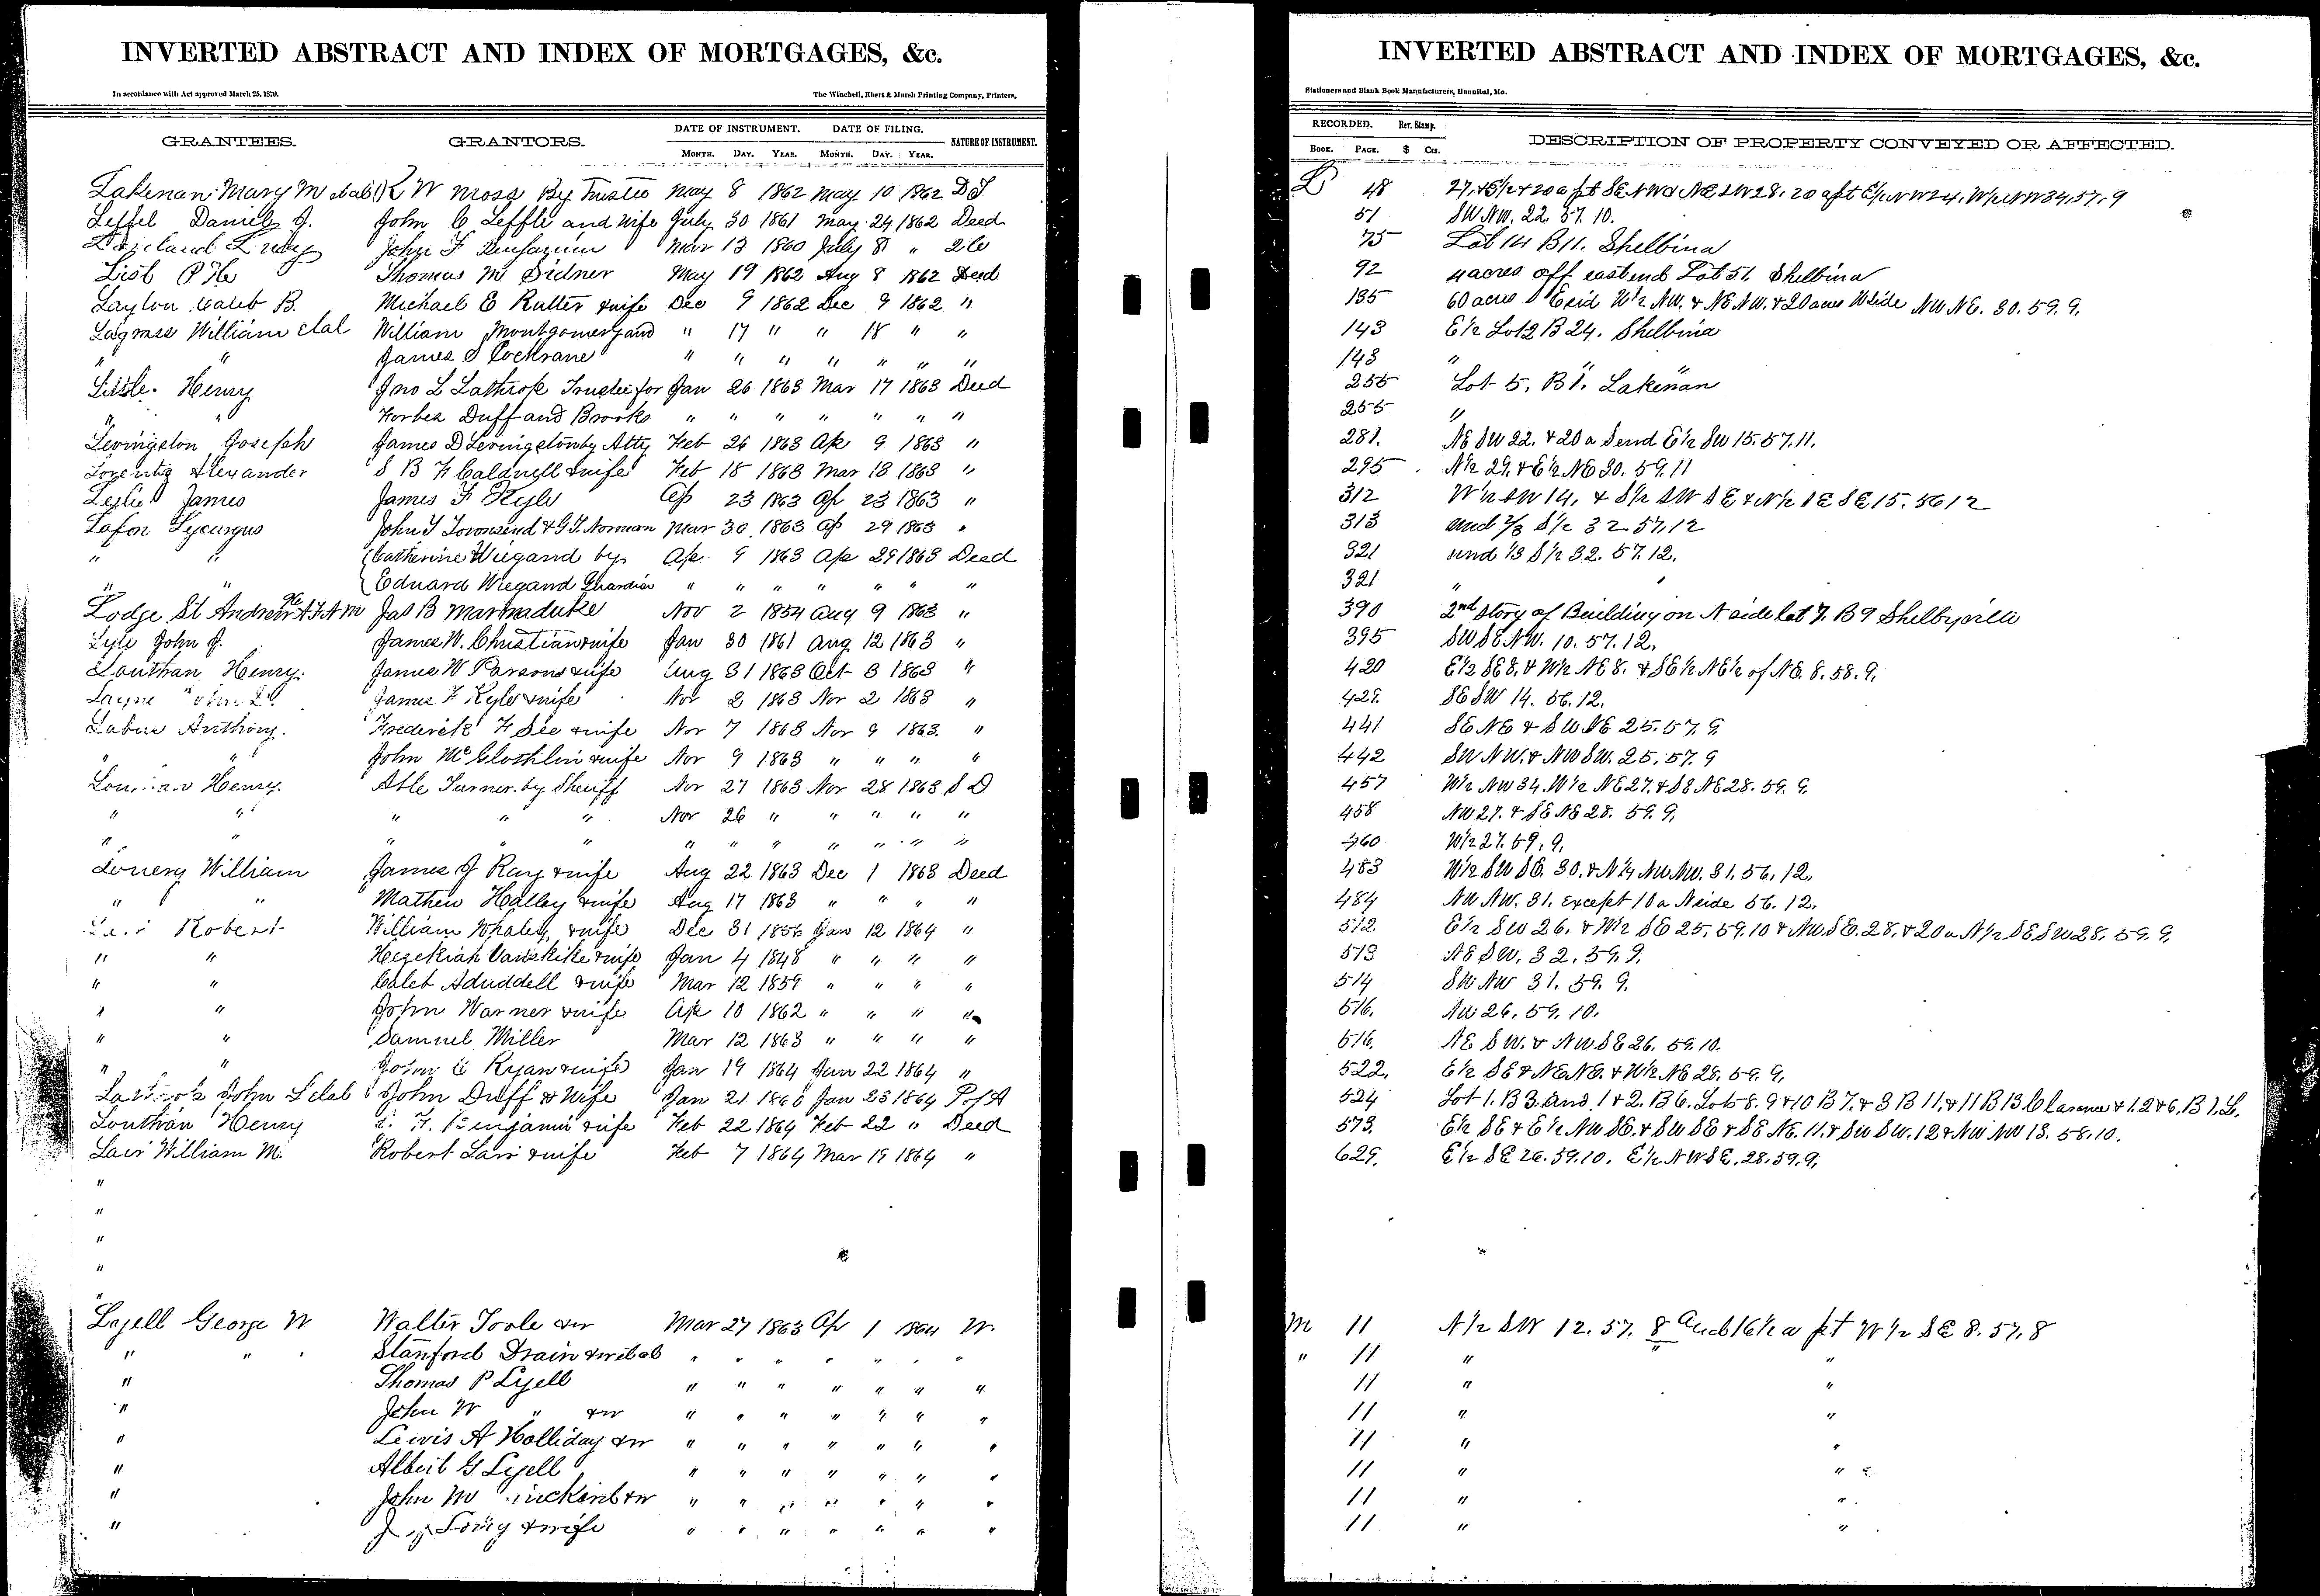 INVERTED ABSTRACT AND INDEX OF MORTGAGES, &c.
In accordance with Act approved March 25, 1870.
The Winchell, Ebert & Marsh Printing Company, Printers,
GRANTEES. GRANTORS. DATE OF INSTRUMENT. DATE OF FILING. NATURE OF INSTRUMENT.
MONTH. DAY. YEAR. MONTH. DAY. YEAR.
Lakenan Mary M etal R W Moss By Trustee May 8 1862 May 10 1862 D T
Leffel Daniel J. John C Leffle and Wife July 30 1861 May 24 1862 Deed
John F Benjamin Mar 13 1860 July 8 "
List Thomas M Sidner May 19 1862 Aug 8 1862 Deed
Layton Caleb B. Michael E Rutter & wife Dec 9 1862 Dec 9 1862 "
Lagrass William etal William Montgomery and " 17 " " 18 " "
" " James S Cockrane " " " " " " "
Little Henry Jno L Lathrop Trustee for Jan 26 1863 Mar 17 1863 Deed
" " Forbes Duff and Brooks " " " " " " "
Levingston Joseph James D Levingston by Atty Feb 26 1863 Ap 9 1863 "
Lorentz Alexander S B F Caldwell & wife Feb 18 1863 Mar 18 1863 "
Leslie James James F Kyle Ap 23 1863 Ap 23 1863 "
Lafon Lycurgus John S Townsend & G T. Norman Mar 30 1863 Ap 29 1863 "
" " Catherine Wiegand by Ap. 9 1863 Ap 29 1863 Deed
" " Eduard Wiegand Guardian " " " " " " "
Lodge St Andrew A F & A M Jas B Marmaduke Nov 2 1854 Aug 9 1863 "
Lyle John J. James W. Christian & wife Jan 30 1861 Aug 12 1863 "
Louthan Henry. James W Parsons & wife Aug 31 1863 Oct 3 1863 "
Layne John James F Kyle & wife Nov 2 1863 Nov 2 1863 "
Labus Anthony. Frederick F See & wife Nov 7 1863 Nov 9 1863. "
" " John McGlothlin & wife Nov 9 1863 " " " "
Henry. Able Turner by Sheriff Nov 27 1863 Nov 28 1863 S D
" " " " " Nov 26 " " " " "
" " " " " " " " " " " "
Lowery William James J Ray & wife Aug 22 1863 Dec 1 1863 Deed
" " Mathew Halley & wife Aug 17 1863 " " " "
Robert William Whaley & wife Dec 31 1856 Jan 12 1864 "
" " Hezekiah Vanskike & wife Jan 4 1848 " " " "
" " Caleb Aduddell & wife Mar 12 1859 " " " "
" " John Warner & wife Ap 10 1862 " " " "
" " Samuel Miller Mar 12 1863 " " " "
" " John C Ryan & wife Jan 19 1864 Jan 22 1864 "
Lathrop John L etal John Duff & Wife Jan 21 Jan 23 1864 P of A
Louthan Henry F. Benjamin & wife Feb 22 1864 Feb 22 " Deed
Lair William M. Robert Lair & wife Feb 7 1864 Mar 19 1864 "
"
"
"
"
"
Lyell George W Walter Toole & w Mar 27 1863 Ap 1 1864 W.
" " Stanford Drain & w etal " " " " " " "
" Thomas P Lyell " " " " " " "
" John W " & w " " " " " " "
" Lewis A Holliday & w " " " " " " "
" Albert G Lyell " " " " " " "
" John M & w " " " " " " "
" J Long & wife " " " " " " "
INVERTED ABSTRACT AND INDEX OF MORTGAGES, &c.
Stationers and Blank Book Manufacturers, Hannibal, Mo.
RECORDED. Rev. Stamp. DESCRIPTION OF PROPERTY CONVEYED OR AFFECTED.
BOOK. PAGE. $ Cts.
L 48 20 a pt E½ NW 24, W½ NW 34, 57, 9
51 SW NW. 22. 57. 10.
75 Lot 14 B 11. Shelbina
92 4 acres off east end Lot 51. Shelbina
135 60 acres E sid W½ NW. & NE NW. & 20 acres W side NW NE. 30. 59. 9.
143 E½ Lot 2 B 24. Shelbina
143 " "
255 Lot 5, B 1. Lakenan
255 "
281. NE SW 22. & 20 a S end E½ SW 15. 57. 11.
295. N½ 29. & E½ NE 30. 59. 11
312 W½ SW 14, & S½ SW SE & N½ SE SE 15. 56 12
313 und ⅔ S½ 32. 57. 12
321 und ⅓ S½ 32. 57. 12.
321 " "
390 2nd Story of Building on N side lot 7. B 9 Shelbyville
395 SW SE NW. 10. 57. 12.
420 E½ SE 8. & W½ NE 8. & SE½ NE½ of NE. 8. 58. 9.
429. SE SW 14. 56. 12.
441 SE NE & SW NE 25. 57. 9.
442 SW NW. & NW SW. 25. 57. 9
457 W½ NW 34. W½ NE 27. & SE NE 28. 59. 9.
458 NW 27. & SE NE 28. 59. 9.
460 W½ 27. 59. 9.
483 W½ SW SE. 30. & N¼ NW NW. 31. 56. 12.
484 NW NW. 31. except 10 a N side 56. 12.
512. E½ SW 26. & W½ SE 25. 59. 10 & NW. SE. 28. & 20 a N½ SE SW 28. 59. 9.
513 NE SW. 32. 59. 9.
514 SW NW 31. 59. 9.
516. NW 26. 59. 10.
516. NE SW. & NW SE 26. 59. 10.
522. E½ SE & NE NE. & W½ NE 28. 59. 9.
524 Lot 1. B 3. and 1 & 2. B 6. Lots 8. 9 & 10 B 7. & 3 B 11. & 11 B 13 Clarence & 1. 2 & 6. B 1. L.
573. E½ SE & E½ NW SE. & SW SE & SE NE. 11. & SW SW. 12 & NW NW 13. 58. 10.
629. E½ SE 26. 59. 10. E½ NW SE. 28. 59. 9.
M 11 N½ SW 12. 57. 8 and 16½ a pt W½ SE 8. 57. 8
" 11 " " "
11 " "
11 " "
11 " "
11 " "
11 " "
11 " "